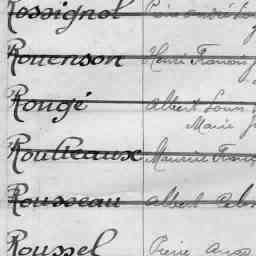 Rossignol Pierre André Lou
Rouenson Henri Francis J
Rougé Albert Louis
Marie J
Roulteaux Maurice Franç
Rousseau Albert
Roussel Pierre Aug